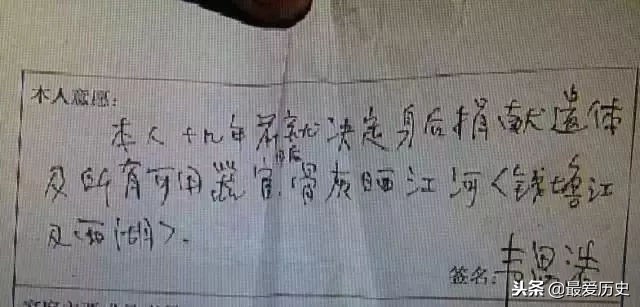 本人意愿:
本人十九年前就决定身后捐献遗体
及所有可用器官,骨灰晒江河<钱塘江
及西湖>.
签名:韦思浩
头条@最爱历史